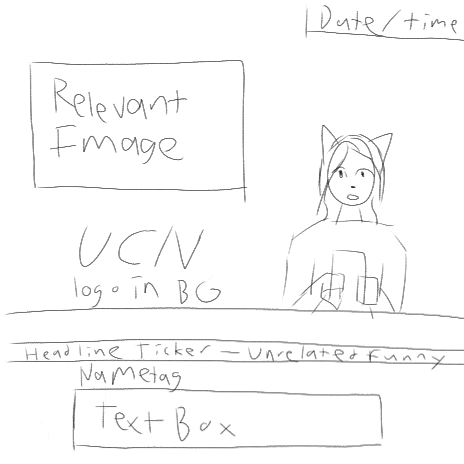 Date/time
Relevant
Image
UCN
logo in BG
Headline Ticker - Unrelated funny
Nametag
Text Box